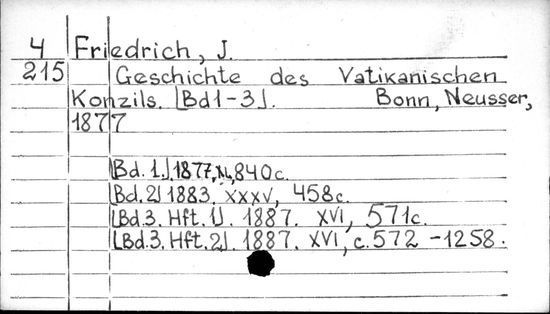 4 Friedrich, J.
215 Geschichte des Vatikanischen
Konzils. [Bd 1-3]. Bonn, Neusser,
1877
[Bd. 1.] 1877, XI, 840 c.
[Bd. 2] 1883. XXXV, 458 c.
[Bd. 3. Hft. 1]. 1887. XVI, 571 c.
[Bd. 3. Hft. 2]. 1887. XVI, c. 572 - 1258.